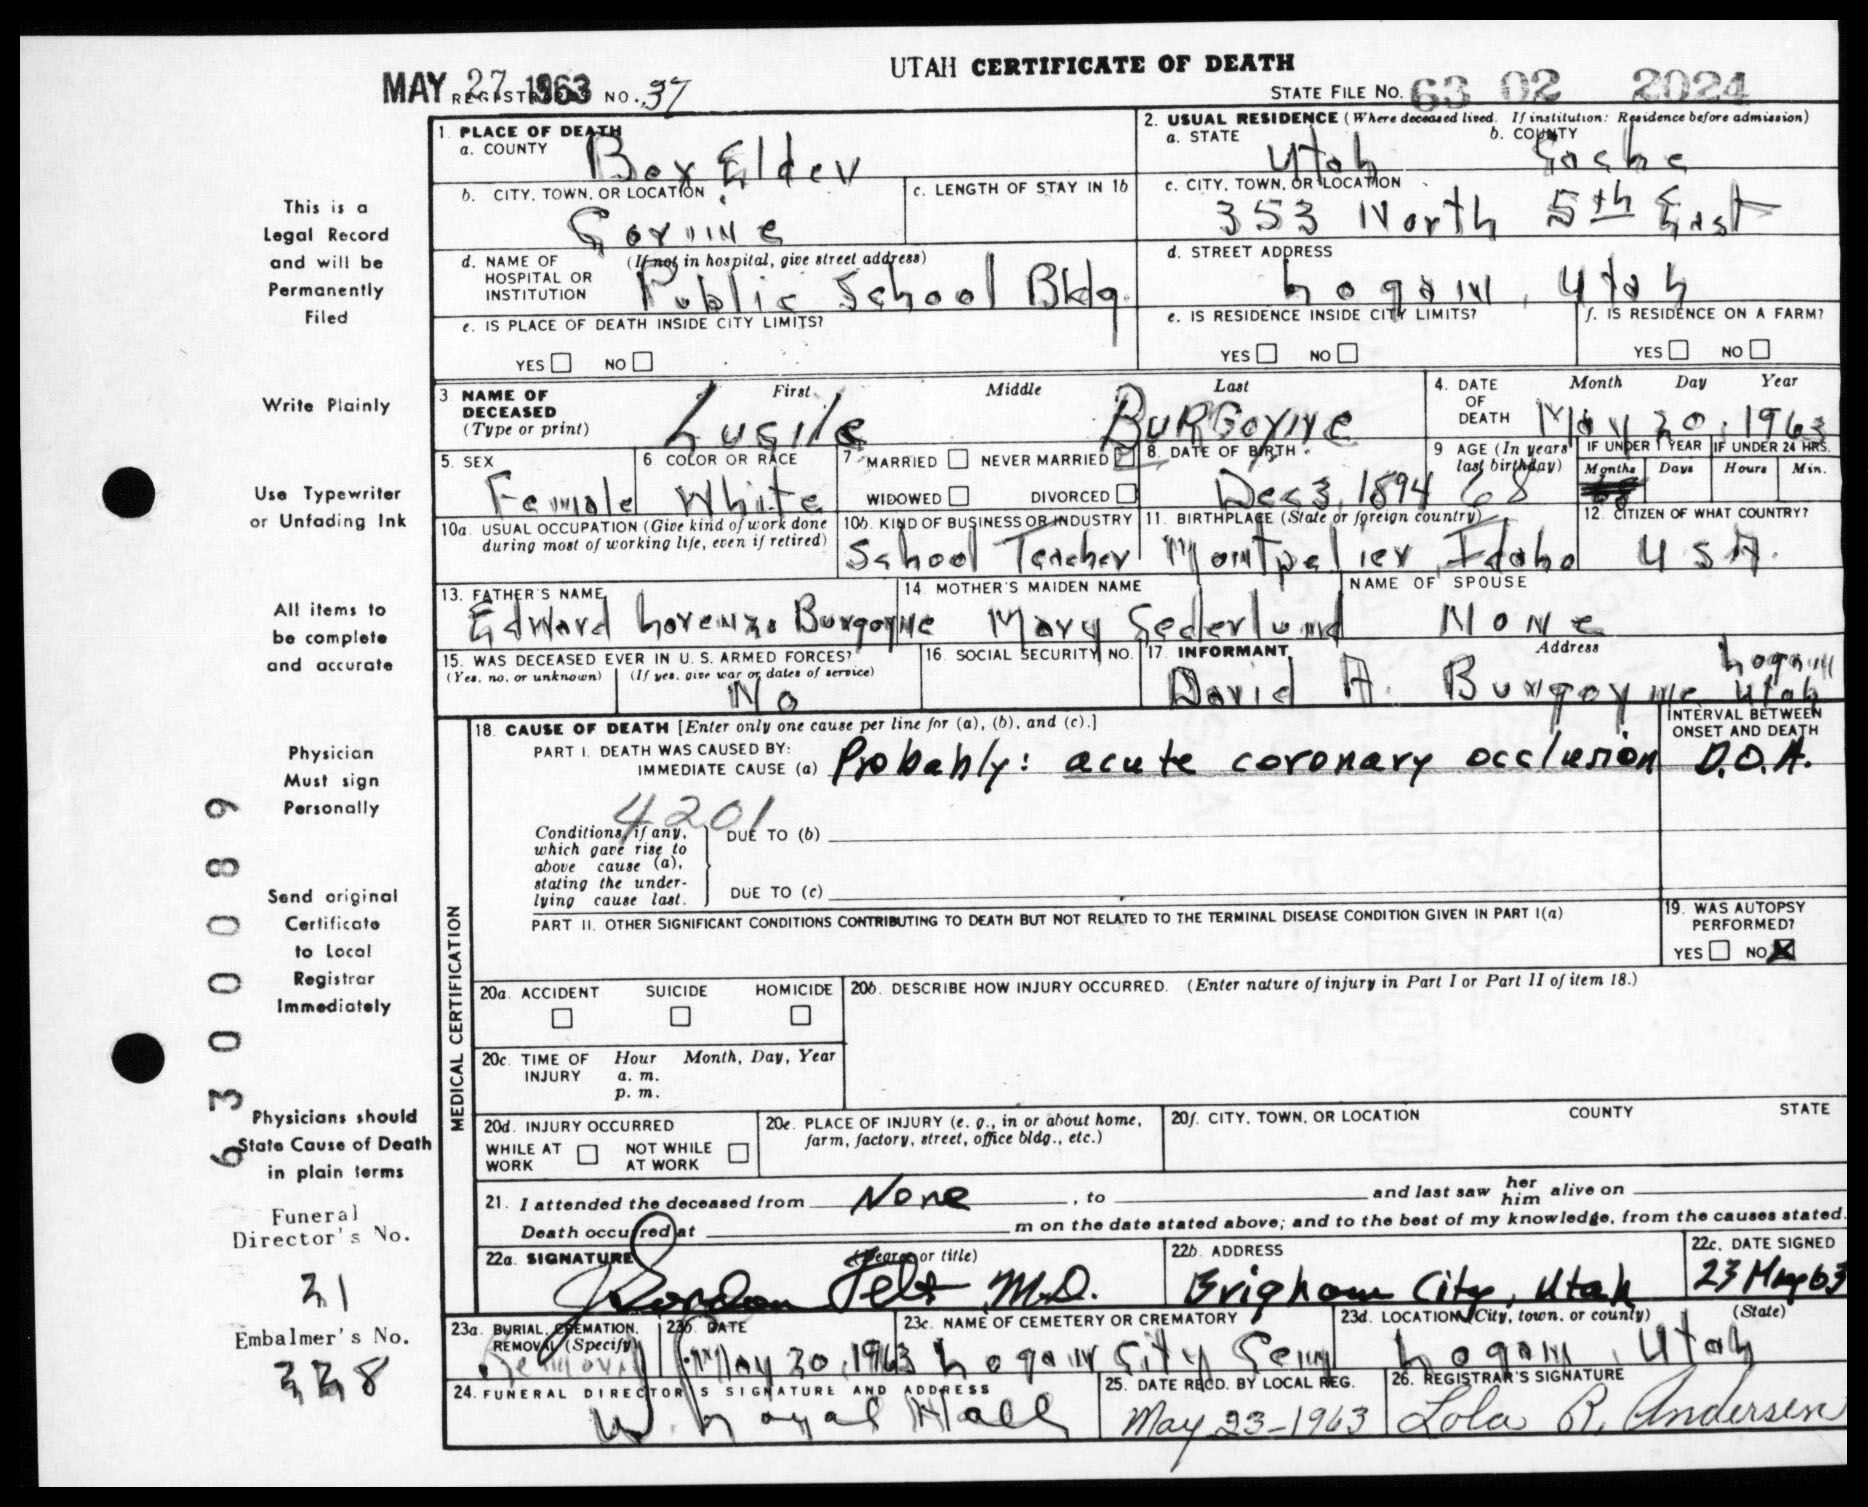 UTAH CERTIFICATE OF DEATH
MAY 27 1963 REGISTRAR'S NO. 37
STATE FILE NO. 63 02 2024
1. PLACE OF DEATH
a. COUNTY Box Elder
2. USUAL RESIDENCE (Where deceased lived. If institution: Residence before admission)
a. STATE Utah b. COUNTY Cache
b. CITY, TOWN, OR LOCATION Corinne
c. LENGTH OF STAY IN 1b
c. CITY, TOWN, OR LOCATION 353 North 5th East
d. NAME OF HOSPITAL OR INSTITUTION (If not in hospital, give street address) Public School Bldg.
d. STREET ADDRESS Logan, Utah
e. IS PLACE OF DEATH INSIDE CITY LIMITS?
YES NO
e. IS RESIDENCE INSIDE CITY LIMITS?
YES NO
f. IS RESIDENCE ON A FARM?
YES NO
3 NAME OF DECEASED (Type or print)
First Middle Last
Lucile Burgoyne
4. DATE OF DEATH
Month Day Year
May 20, 1963
5. SEX Female
6 COLOR OR RACE White
7 MARRIED NEVER MARRIED
WIDOWED DIVORCED
8. DATE OF BIRTH Dec 3, 1894
9 AGE (In years last birthday) 68
IF UNDER 1 YEAR
Months Days
IF UNDER 24 HRS.
Hours Min.
10a. USUAL OCCUPATION (Give kind of work done during most of working life, even if retired)
10b. KIND OF BUSINESS OR INDUSTRY School Teacher
11. BIRTHPLACE (State or foreign country) Montpelier, Idaho
12. CITIZEN OF WHAT COUNTRY? U S A.
13. FATHER'S NAME Edward Lorenzo Burgoyne
14. MOTHER'S MAIDEN NAME Mary Cederlund
NAME OF SPOUSE None
15. WAS DECEASED EVER IN U. S. ARMED FORCES?
(Yes, no, or unknown) (If yes, give war or dates of service)
No
16. SOCIAL SECURITY NO.
17. INFORMANT Address
David A. Burgoyne Logan Utah
18. CAUSE OF DEATH [Enter only one cause per line for (a), (b), and (c).]
INTERVAL BETWEEN ONSET AND DEATH
PART I. DEATH WAS CAUSED BY:
IMMEDIATE CAUSE (a) Probably: acute coronary occlusion D.O.A.
4201
Conditions, if any, which gave rise to above cause (a), stating the underlying cause last.
DUE TO (b)
DUE TO (c)
PART II. OTHER SIGNIFICANT CONDITIONS CONTRIBUTING TO DEATH BUT NOT RELATED TO THE TERMINAL DISEASE CONDITION GIVEN IN PART I(a)
19. WAS AUTOPSY PERFORMED?
YES NO X
MEDICAL CERTIFICATION
20a. ACCIDENT SUICIDE HOMICIDE
20b. DESCRIBE HOW INJURY OCCURRED. (Enter nature of injury in Part I or Part II of item 18.)
20c. TIME OF INJURY
Hour Month, Day, Year
a. m.
p. m.
20d. INJURY OCCURRED
WHILE AT WORK NOT WHILE AT WORK
20e. PLACE OF INJURY (e. g., in or about home, farm, factory, street, office bldg., etc.)
20f. CITY, TOWN, OR LOCATION COUNTY STATE
21. I attended the deceased from None, to and last saw her him alive on
Death occurred at m on the date stated above; and to the best of my knowledge, from the causes stated.
22a. SIGNATURE (Degree or title)
J Gordon Felt M.D.
22b. ADDRESS Brigham City, Utah
22c. DATE SIGNED 23 May 63
23a. BURIAL, CREMATION, REMOVAL (Specify) Removal
23b. DATE May 20, 1963
23c. NAME OF CEMETERY OR CREMATORY Logan City Cem
23d. LOCATION (City, town, or county) (State)
Logan, Utah
24. FUNERAL DIRECTOR'S SIGNATURE AND ADDRESS
W. Loyal Hall
25. DATE RECD. BY LOCAL REG. May 23-1963
26. REGISTRAR'S SIGNATURE Lola R. Andersen
This is a
Legal Record
and will be
Permanently
Filed
Write Plainly
Use Typewriter
or Unfading Ink
All items to
be complete
and accurate
Physician
Must sign
Personally
Send original
Certificate
to Local
Registrar
Immediately
Physicians should
State Cause of Death
in plain terms
Funeral
Director's No.
21
Embalmer's No.
338
6300089